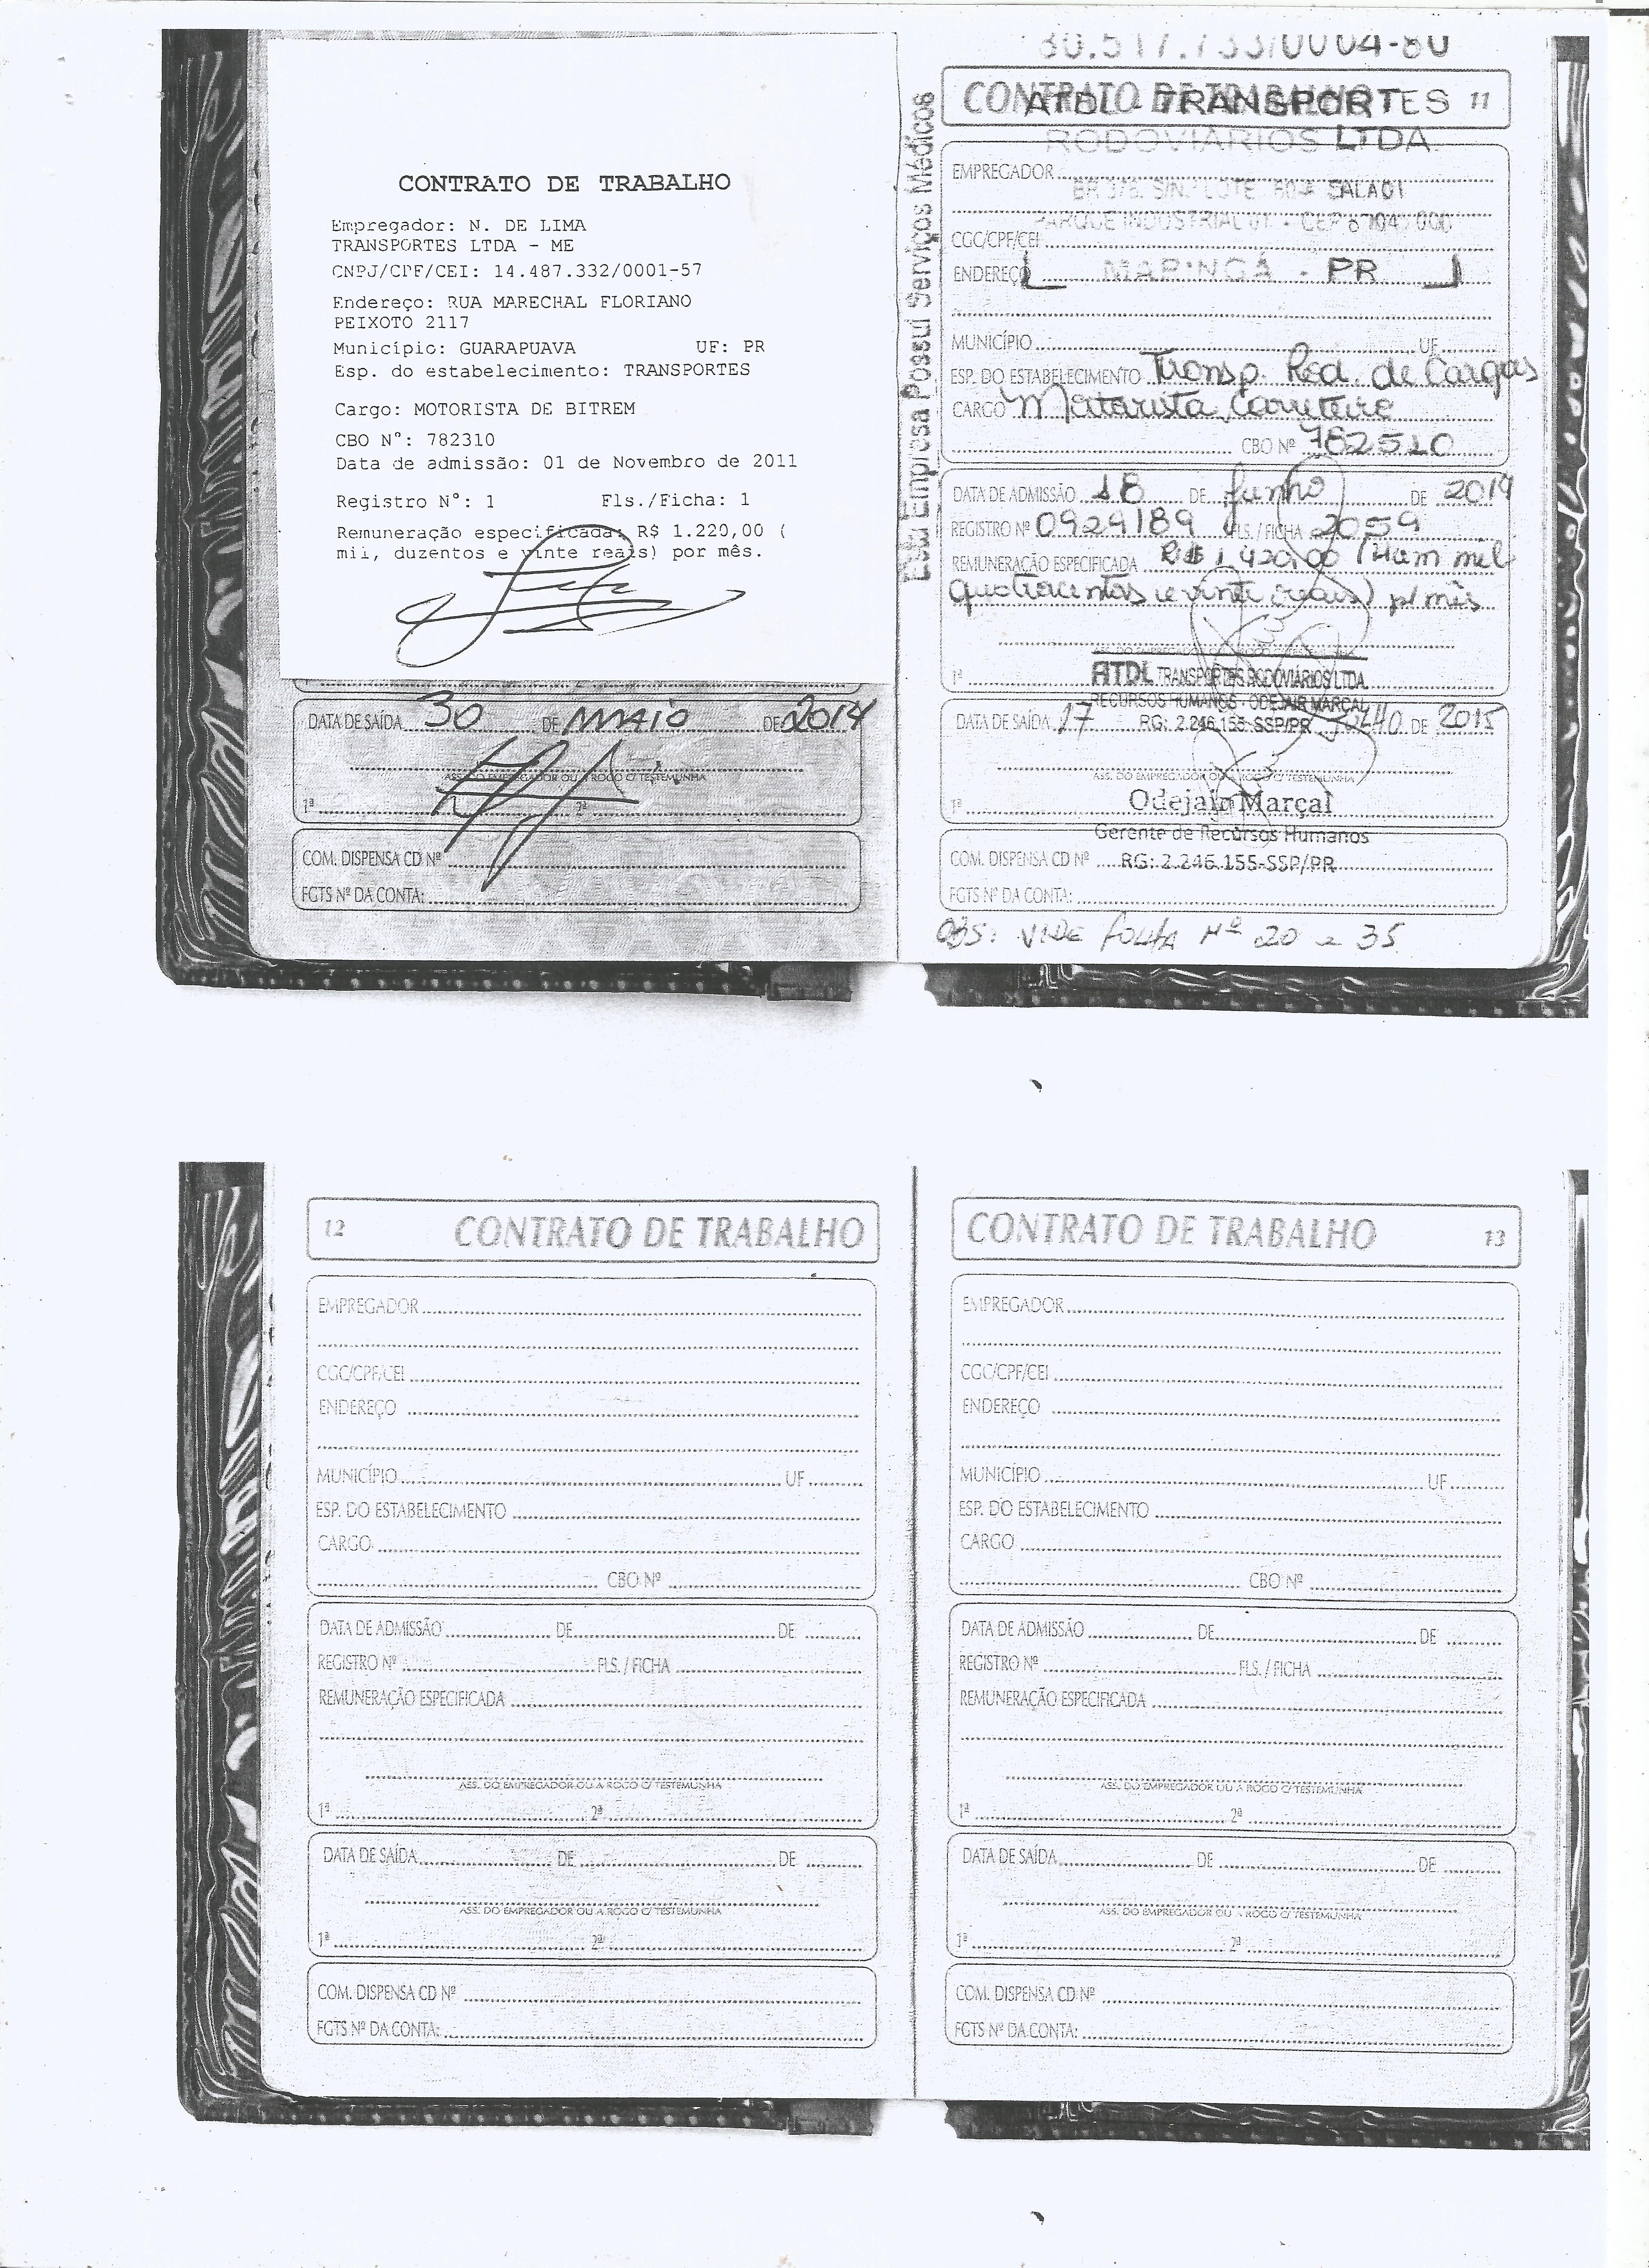 CONTRATO DE TRABALHO
Empregador: N. DE LIMA
TRANSPORTES LTDA - ME
CNPJ/CPF/CEI: 14.487.332/0001-57
Endereço: RUA MARECHAL FLORIANO
PEIXOTO 2117
Município: GUARAPUAVA UF: PR
Esp. do estabelecimento: TRANSPORTES
Cargo: MOTORISTA DE BITREM
CBO N°: 782310
Data de admissão: 01 de Novembro de 2011
Registro N°: 1 Fls./Ficha: 1
Remuneração especificada: R$ 1.220,00 (
mil, duzentos e vinte reais) por mês.
DATA DE SAÍDA 30 DE MAIO DE 2014
ASS. DO EMPREGADOR OU A ROGO C/ TESTEMUNHA
1ª 2ª
COM. DISPENSA CD Nº
FGTS Nº DA CONTA:
Esta Empresa Possui Serviços Médicos
80.517.733/0004-80
CONTRATO DE TRABALHO 11
ATDL - TRANSPORTES
RODOVIÁRIOS LTDA
EMPREGADOR
SALA 01
PARQUE INDUSTRIAL
CGC/CPF/CEI
ENDEREÇO MARINGÁ - PR
MUNICÍPIO UF
ESP. DO ESTABELECIMENTO Transp. Rod. de Cargas
CARGO Motorista Carreteiro
CBO Nº 782510
DATA DE ADMISSÃO 18 DE Junho DE 2014
REGISTRO Nº 0929189 FLS. / FICHA 2059
REMUNERAÇÃO ESPECIFICADA R$ 1.420,00 (Hum mil
quatrocentos e vinte reais) p/ mês
1ª ATDL TRANSPORTES RODOVIÁRIOS LTDA
RECURSOS HUMANOS - ODEJAIR MARÇAL
RG: 2.246.155-SSP/PR
DATA DE SAÍDA 17 JULHO DE 2015
ASS. DO EMPREGADOR OU A ROGO C/ TESTEMUNHA
1ª Odejair Marçal
Gerente de Recursos Humanos
COM. DISPENSA CD Nº RG: 2.246.155-SSP/PR
FGTS Nº DA CONTA:
OBS: VIDE FOLHA Nº 20 e 35
12 CONTRATO DE TRABALHO
EMPREGADOR
CGC/CPF/CEI
ENDEREÇO
MUNICÍPIO UF
ESP. DO ESTABELECIMENTO
CARGO
CBO Nº
DATA DE ADMISSÃO DE DE
REGISTRO Nº FLS. / FICHA
REMUNERAÇÃO ESPECIFICADA
ASS. DO EMPREGADOR OU A ROGO C/ TESTEMUNHA
1ª 2ª
DATA DE SAÍDA DE DE
ASS. DO EMPREGADOR OU A ROGO C/ TESTEMUNHA
1ª 2ª
COM. DISPENSA CD Nº
FGTS Nº DA CONTA:
CONTRATO DE TRABALHO 13
EMPREGADOR
CGC/CPF/CEI
ENDEREÇO
MUNICÍPIO UF
ESP. DO ESTABELECIMENTO
CARGO
CBO Nº
DATA DE ADMISSÃO DE DE
REGISTRO Nº FLS. / FICHA
REMUNERAÇÃO ESPECIFICADA
ASS. DO EMPREGADOR OU A ROGO C/ TESTEMUNHA
1ª 2ª
DATA DE SAÍDA DE DE
ASS. DO EMPREGADOR OU A ROGO C/ TESTEMUNHA
1ª 2ª
COM. DISPENSA CD Nº
FGTS Nº DA CONTA: